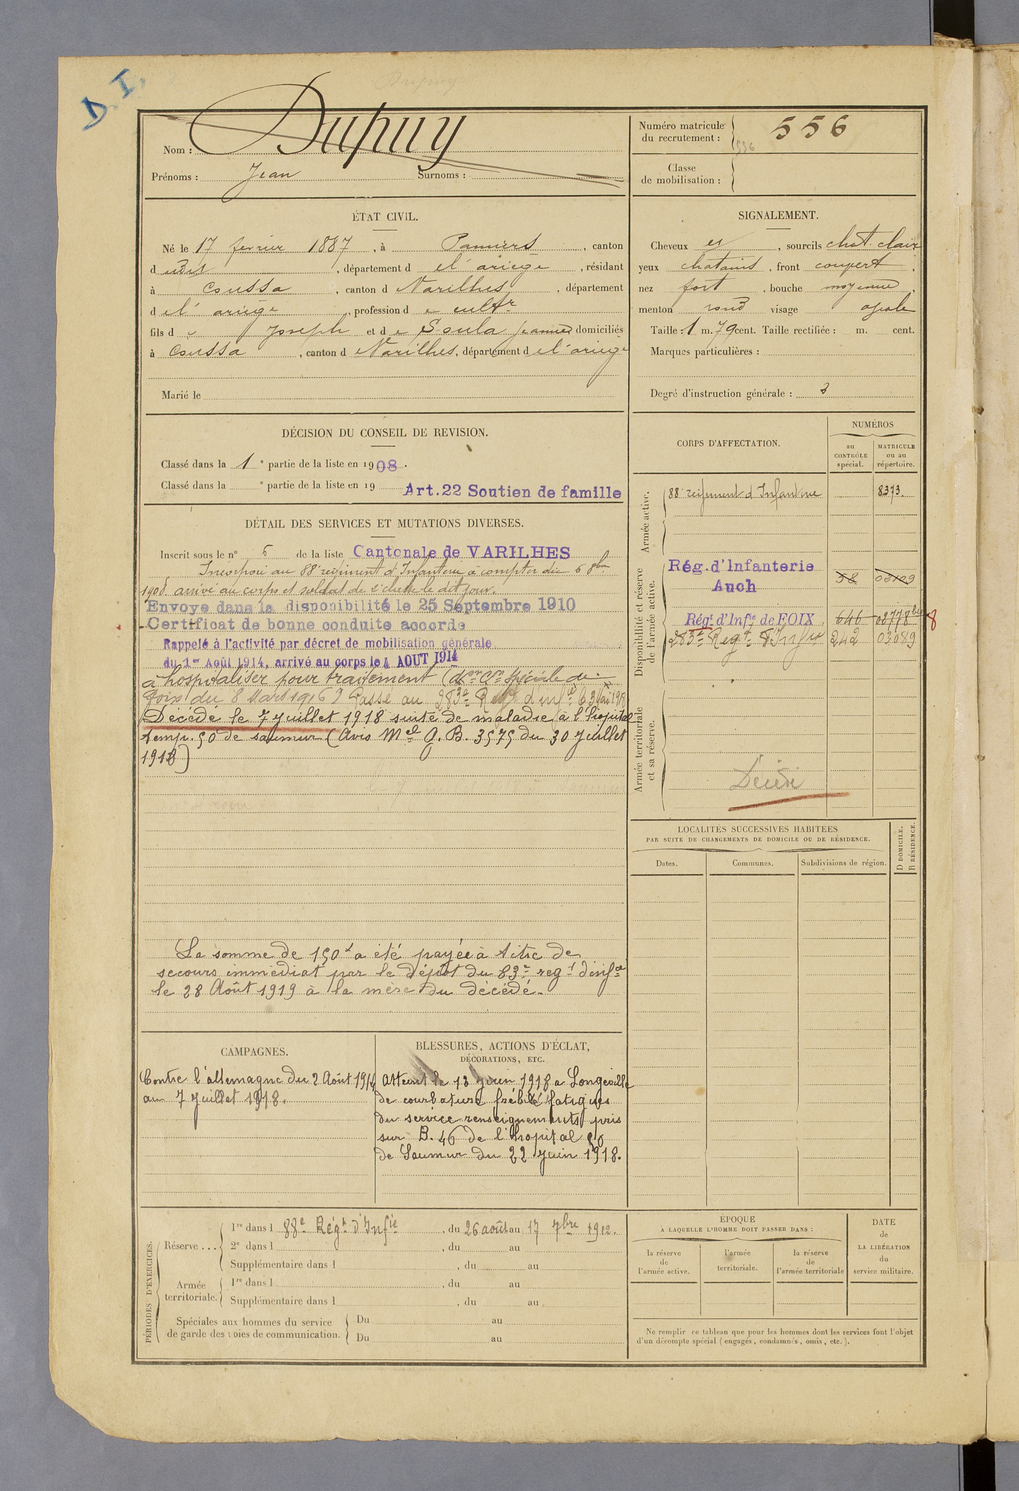 D. I.
Nom : Dupuy
Prénoms : Jean Surnoms :
Numéro matricule du recrutement : 556
556
Classe de mobilisation :
ÉTAT CIVIL.
Né le 17 fevrier 1887, à Pamiers, canton
d udit, département d el'ariège, résidant
à Coussa, canton d Varilhes, département
d el'ariège, profession d e cultr
fils d e Joseph et d e Soula Jeanne domiciliés
à Coussa, canton d Varilhes, département d el'ariège
Marié le
SIGNALEMENT.
Cheveux et, sourcils chat. clair
yeux chatains, front couvert,
nez fort, bouche moyenne,
menton rond visage ovale
Taille : 1 m. 79 cent. Taille rectifiée : m. cent.
Marques particulières :
Degré d'instruction générale : 3
DÉCISION DU CONSEIL DE REVISION.
Classé dans la 1e partie de la liste en 1908.
Classé dans la e partie de la liste en 19 Art.22 Soutien de famille
DÉTAIL DES SERVICES ET MUTATIONS DIVERSES.
Inscrit sous le n° 6 de la liste Cantonale de VARILHES
Incorporé au 88e régiment d'Infanterie à compter du 6 8bre
1908. arrivé au corps et soldat de 2e classe le dit jour.
Envoye dans la disponibilité le 25 Septembre 1910
Certificat de bonne conduite accorde
Rappelé à l'activité par décret de mobilisation générale
du 1er Août 1914, arrivé au corps le 4 AOUT 1914
à hospitaliser pour traitement (Con Spéciale de
Foix du 8 Mars 1916) Passé au 283e Regt d'Infie
Décédé le 7 juillet 1918 suite de maladie à l'hopital
temp. 50 de saumur (Avis Mel G. B. 3575 du 30 juillet
1918)
La somme de 150f a été payée à titre de
secours immédiat par le dépôt du 83e regt d'infie
le 28 Août 1919 à la mère du décédé.
CORPS D'AFFECTATION.
NUMÉROS
au CONTRÔLE spécial.
MATRICULE ou au répertoire.
Armée active.
88e régiment d'Infanterie 8373.
Disponibilité et réserve de l'armée active.
Rég. d'Infanterie
Auch 58 00109
Régt d'Infie de FOIX 646 00778bis 8
283e Regt d'Infie 242 03089
Armée territoriale et sa réserve.
Décédé
LOCALITÉS SUCCESSIVES HABITÉES
PAR SUITE DE CHANGEMENTS DE DOMICILE OU DE RÉSIDENCE.
Dates. Communes. Subdivisions de région.
D DOMICILE. R RÉSIDENCE.
CAMPAGNES.
Contre l'allemagne du 2 Août 1914
au 7 juillet 1918.
BLESSURES, ACTIONS D'ÉCLAT,
DÉCORATIONS, ETC.
Atteint le 13 juin 1918 a Longeville
de courbature fébrile fatigues
du service renseignements pris
sur B. 46 de l'hopital 50
de Saumur du 22 juin 1918.
PÉRIODES D'EXERCICES.
Réserve ... 1re dans l 88e Régt d'Infie, du 26 août au 17 7bre 1912.
2e dans l, du au
Supplémentaire dans l, du au
Armée territoriale. 1re dans l, du au
Supplémentaire dans l, du au
Spéciales aux hommes du service de garde des voies de communication. Du au
Du au
ÉPOQUE
À LAQUELLE L'HOMME DOIT PASSER DANS :
la réserve de l'armée active.
l'armée territoriale.
la réserve de l'armée territoriale
DATE de LA LIBÉRATION du service militaire.
Ne remplir ce tableau que pour les hommes dont les services font l'objet
d'un décompte spécial (engagés, condamnés, omis, etc.).